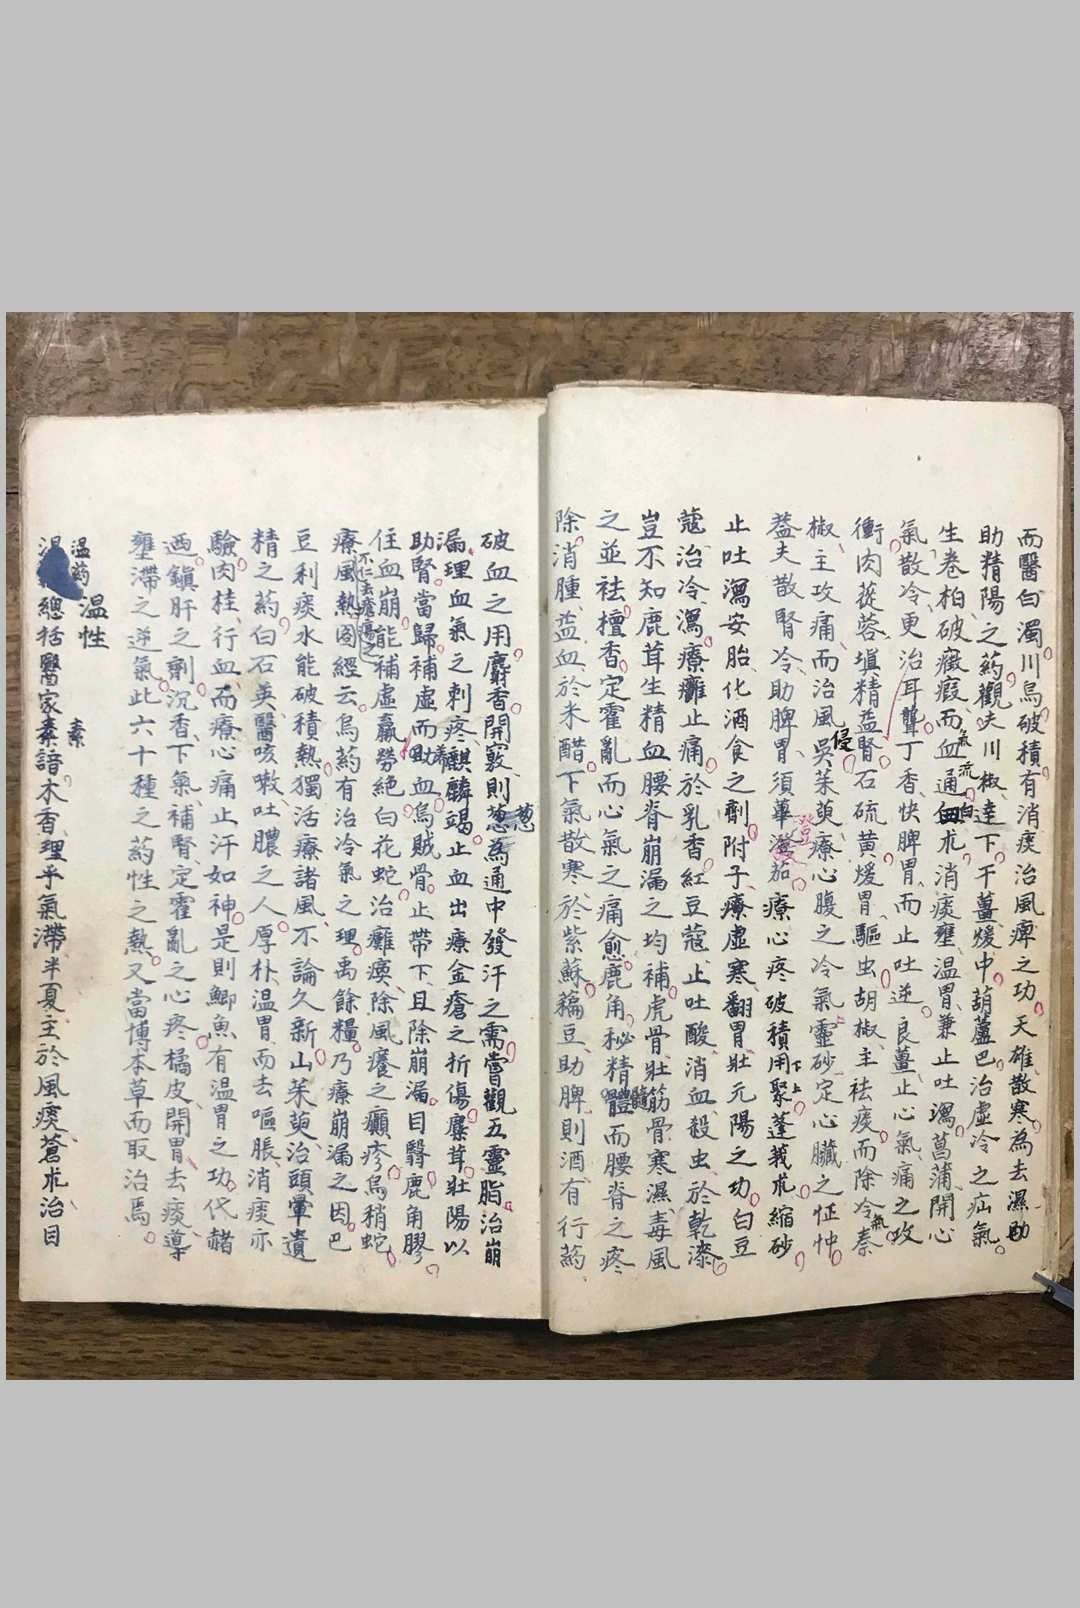 而醫白濁川烏破積有消痰治風痺之功天雄散寒為去濕助
助精陽之药觀夫川椒達下干薑煖中葫蘆巴治虛冷之疝氣
生卷柏破癥瘕而血通白朮消痰壅溫胃兼止吐瀉菖蒲開心
氣流 白
氣散冷更治耳聾丁香快脾胃而止吐逆良薑止心氣痛之攻
衝肉蓯蓉塡精益腎石硫黄煖胃驅虫胡椒主祛痰而除冷秦
氣
椒主攻痛而治風吳茱萸療心腹之冷氣靈砂定心臟之怔忡
侵
蓋夫散腎冷助脾胃須蓽澄茄療心疼破積用聚蓬莪朮縮砂
澄
下上
止吐瀉安胎化酒食之劑附子療虛寒翻胃壯元陽之功白豆
蔻治冷瀉療癰止痛於乳香紅豆蔻止吐酸消血殺虫於乾漆
豈不知鹿茸生精血腰脊崩漏之均補虎骨壯筋骨寒濕毒風
之並祛檀香定霍亂而心氣之痛愈鹿角秘精體而腰脊之疼
髓
除消腫益血於米醋下氣散寒於紫蘇藊豆助脾則酒有行药
破血之用麝香開竅則葱為通中發汗之需嘗觀五靈脂治崩
葱
漏理血氣之刺疼麒麟竭止血出療金瘡之折傷麋茸壯陽以
助腎當歸補虛而助血烏賊骨止帶下且除崩漏目翳鹿角膠
養
住血崩能補虛羸勞絕白花蛇治癱瘓除風癢之癲疹烏稍蛇
療風熱图經云烏药有治冷氣之理禹餘糧乃療崩漏之因巴
不仁去瘡瘍之
豆利痰水能破積熱獨活療諸風不論久新山茱萸治頭暈遺
精之药白石英醫咳嗽吐膿之人厚朴溫胃而去嘔脹消痰亦
驗肉桂行血而療心痛止汗如神是則鯽魚有溫胃之功代赭
迺鎭肝之劑沉香下氣補腎定霍亂之心疼橘皮開胃去痰導
壅滯之逆氣此六十種之药性之熱又當博本草而取治焉
溫性
溫药
總括醫家素諳木香理乎氣滯半夏主於風痰蒼朮治目
素